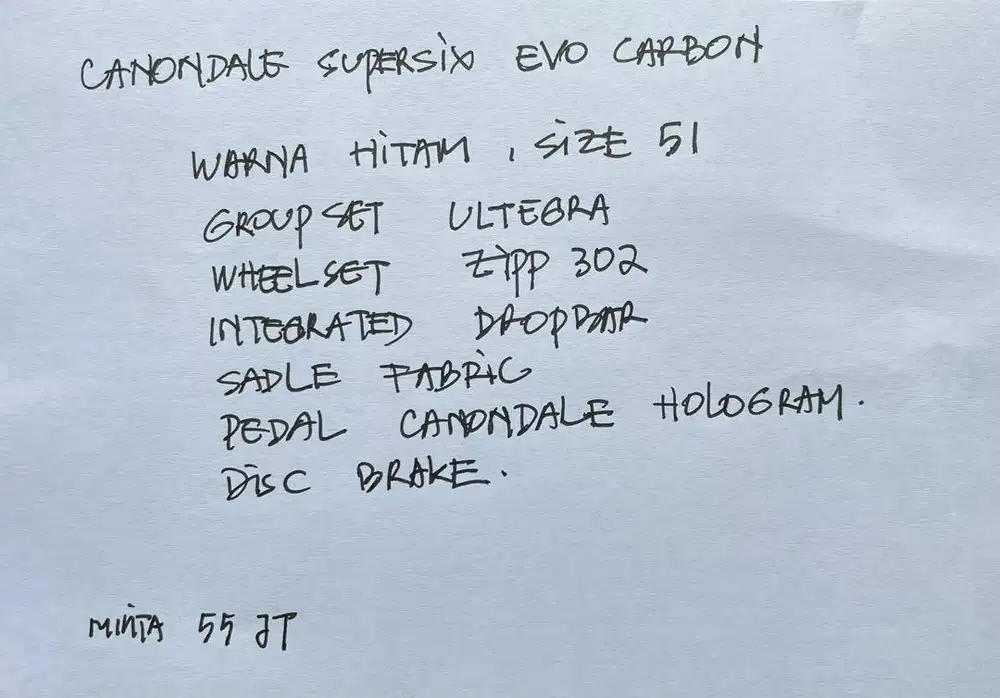 CANONDALE SUPERSIX EVO CARBON
WARNA HITAM, SIZE 51
GROUPSET ULTEGRA
WHEELSET ZIPP 302
INTEGRATED DROPBAR
SADLE FABRIC
PEDAL CANONDALE HOLOGRAM.
DISC BRAKE.
MINTA 55 JT